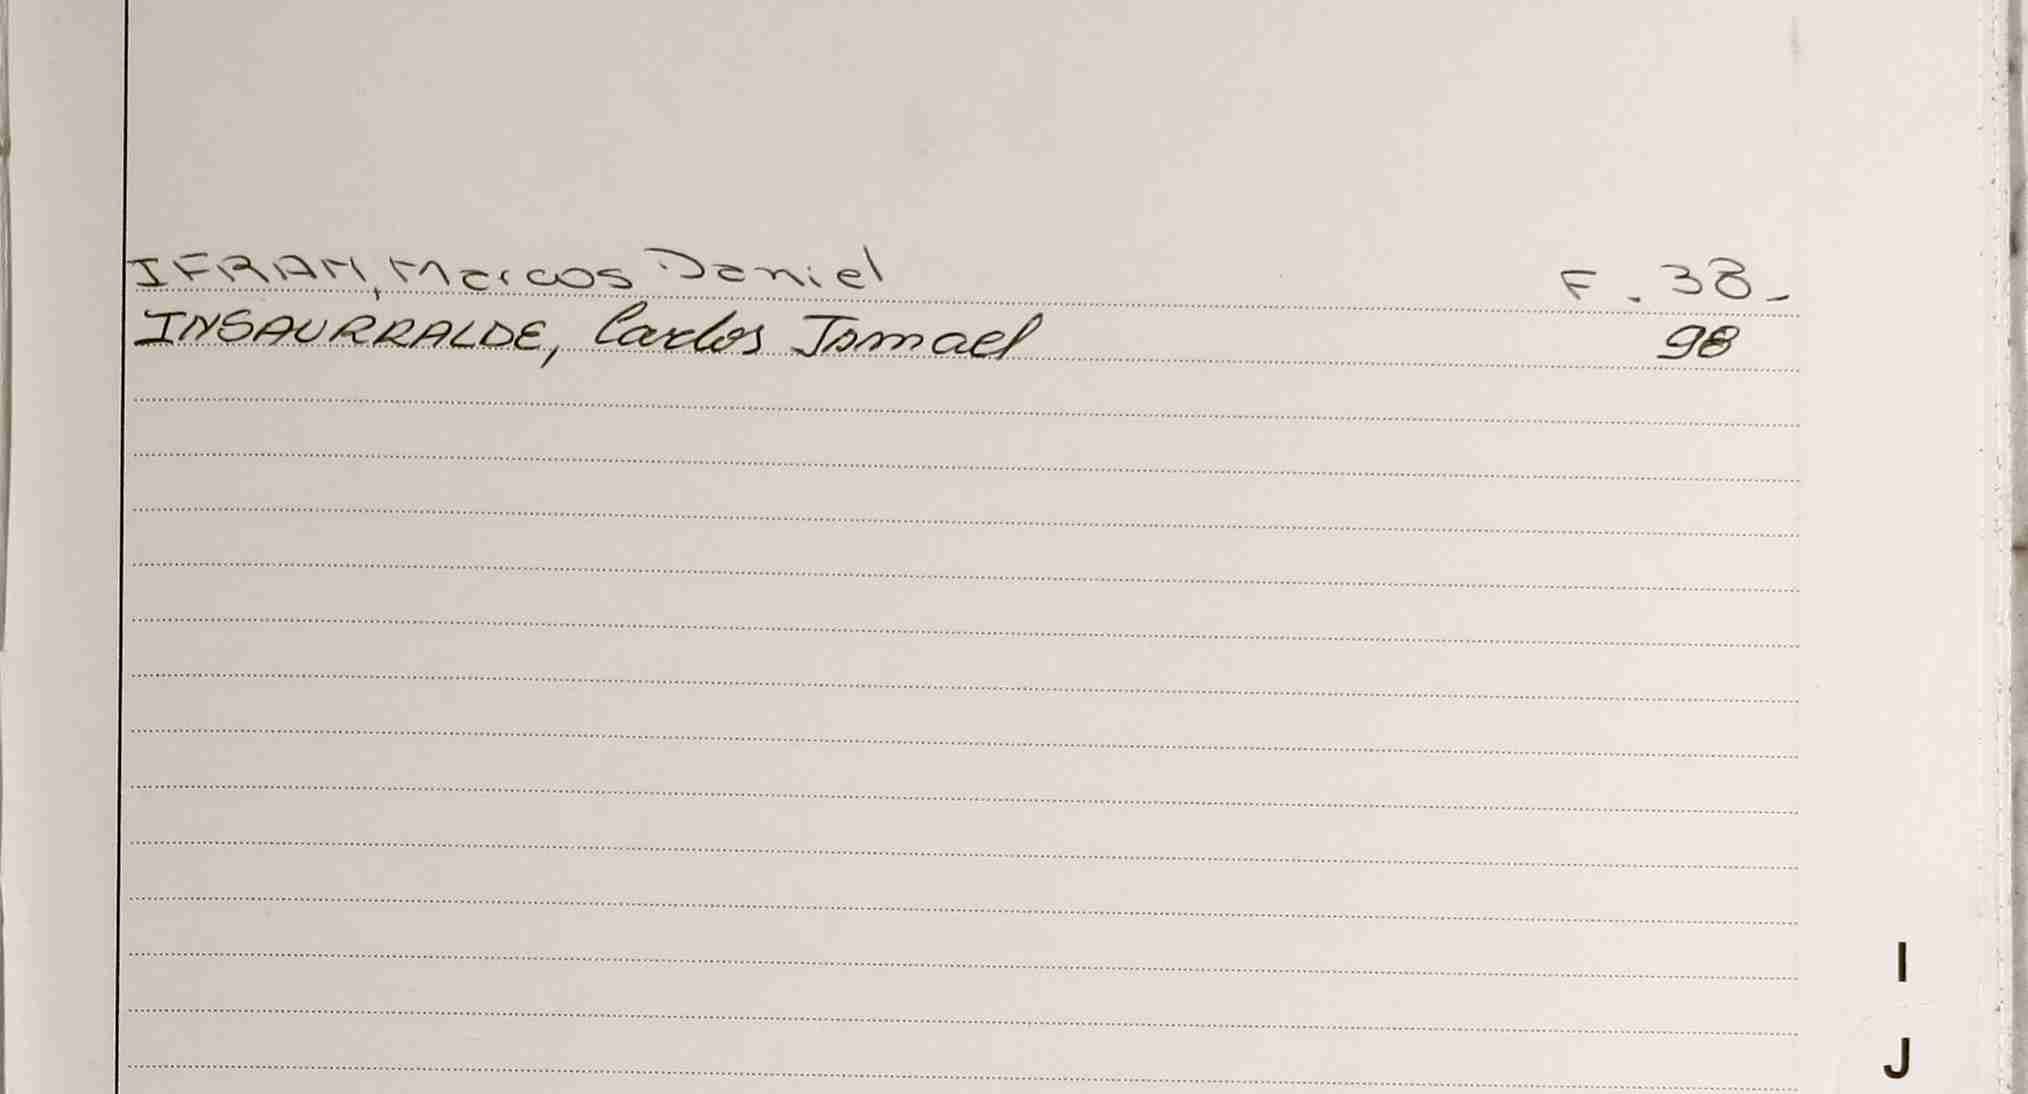 IFRAN, Marcos Daniel F. 38-
INSAURRALDE, Carlos Ismael 98
I
J